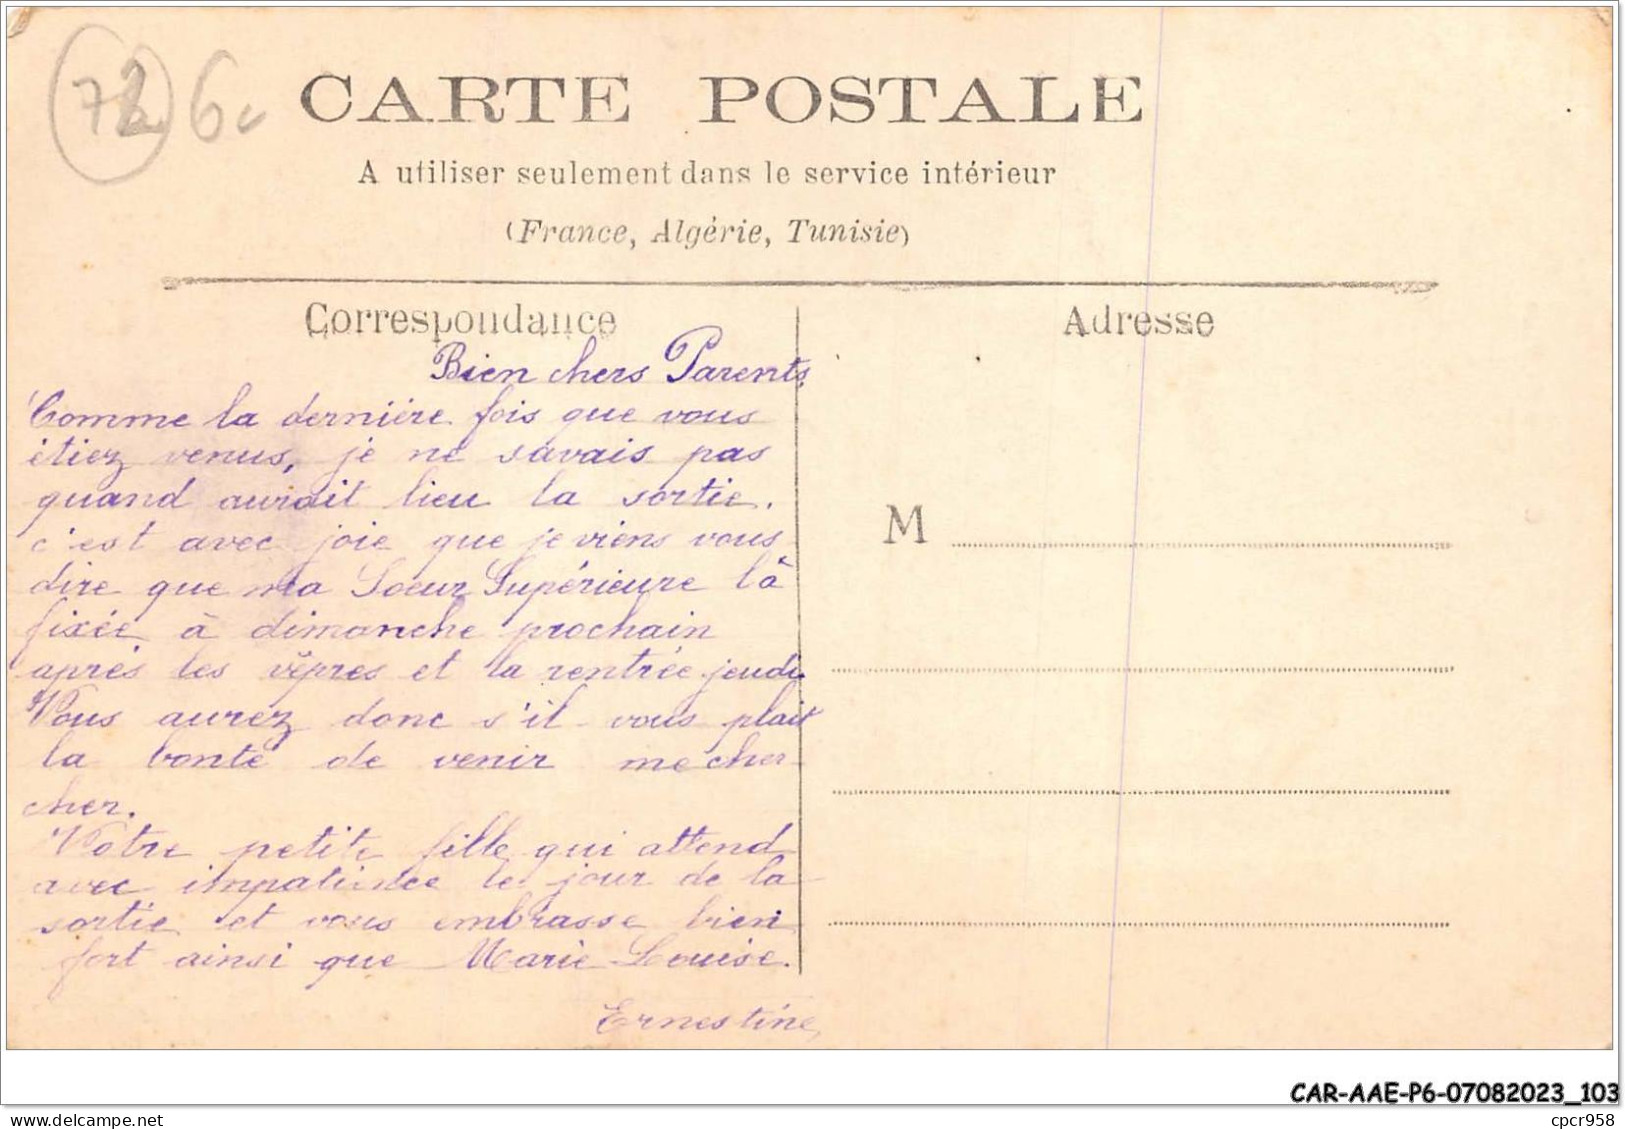 72 6
CARTE POSTALE
A utiliser seulement dans le service intérieur
(France, Algérie, Tunisie)
Correspondance
Adresse
Bien chers Parents,
Comme la dernière fois que vous
étiez venus, je ne savais pas
quand aurait lieu la sortie.
c'est avec joie que je viens vous
dire que ma Soeur Supérieure là
fixée à dimanche prochain
après les vêpres et la rentrée jeudi
Vous aurez donc s'il vous plait
la bonté de venir me cher-
cher.
Votre petite fille qui attend
avec impatience le jour de la
sortie et vous embrasse bien
fort ainsi que Marie-Louise.
Ernestine
M
CAR-AAE-P6-07082023_103
cpcr958